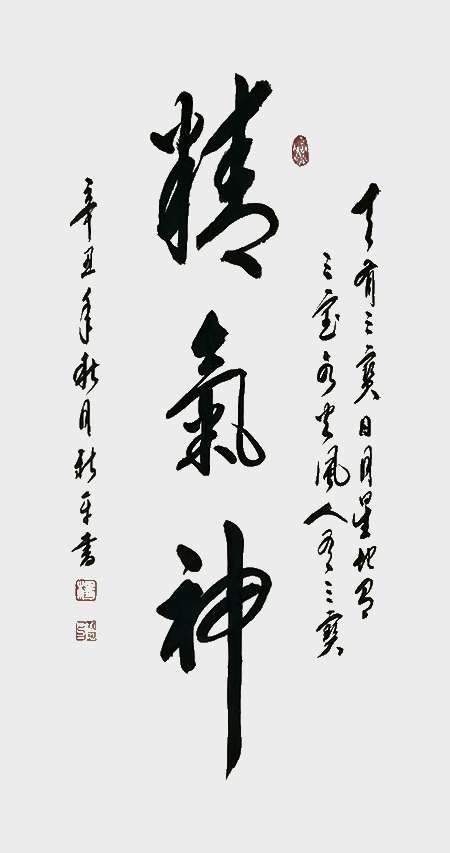 天有三寶日月星地有
三宝水火風人有三寶
精氣神
辛丑年秋月平書